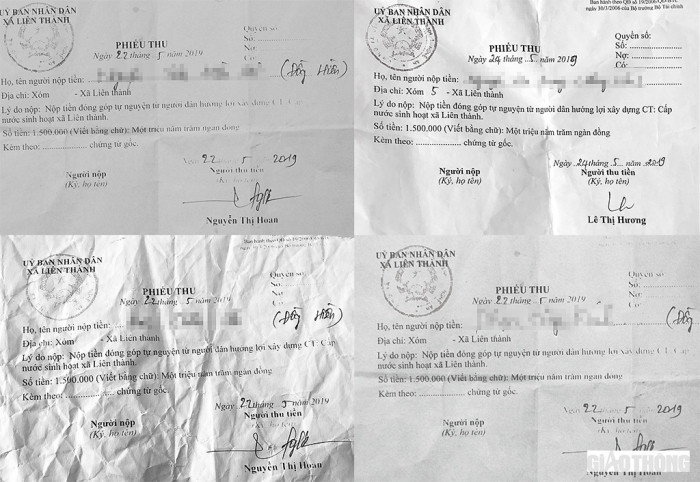 ỦY BAN NHÂN DÂN
XÃ LIÊN THÀNH
Quyển số:
Số:
Nợ:
Có:
PHIẾU THU
Ngày 22 tháng 5 năm 2019
Họ, tên người nộp tiền: (Đồng Hiền)
Địa chỉ: Xóm - Xã Liên thành
Lý do nộp: Nộp tiền đóng góp tự nguyện từ người dân hưởng lợi xây dựng CT: Cấp
nước sinh hoạt xã Liên Thành.
Số tiền: 1.500.000 (Viết bằng chữ): Một triệu năm trăm ngàn đồng
Kèm theo: .................... chứng từ gốc.
Ngày 22 tháng 5 năm 2019
Người nộp
(Ký, họ tên)
Người thu tiền
(Ký, họ tên)
Nguyễn Thị Hoan
Ban hành theo QĐ số 19/2006/QĐ-BTC
ngày 30/3/2006 của Bộ trưởng Bộ Tài chính
ỦY BAN NHÂN DÂN
XÃ LIÊN THÀNH
Quyển số:
Số:
Nợ:
Có:
PHIẾU THU
Ngày 24 tháng 5 năm 2019
Họ, tên người nộp tiền:
Địa chỉ: Xóm 5 - Xã Liên thành
Lý do nộp: Nộp tiền đóng góp tự nguyện từ người dân hưởng lợi xây dựng CT: Cấp
nước sinh hoạt xã Liên Thành.
Số tiền: 1.500.000 (Viết bằng chữ): Một triệu năm trăm ngàn đồng
Kèm theo: .................... chứng từ gốc.
Ngày 24 tháng 5 năm 2019
Người nộp
(Ký, họ tên)
Người thu tiền
(Ký, họ tên)
Lê Thị Hương
ỦY BAN NHÂN DÂN
XÃ LIÊN THÀNH
Quyển số:
Số:
Nợ:
Có:
PHIẾU THU
Ngày 22 tháng 5 năm 2019
Họ, tên người nộp tiền: (Đồng Hiền)
Địa chỉ: Xóm - Xã Liên thành
Lý do nộp: Nộp tiền đóng góp tự nguyện từ người dân hưởng lợi xây dựng CT: Cấp
nước sinh hoạt xã Liên Thành.
Số tiền: 1.500.000 (Viết bằng chữ): Một triệu năm trăm ngàn đồng
Kèm theo: .................... chứng từ gốc.
Ngày 22 tháng 5 năm 2019
Người nộp
(Ký, họ tên)
Người thu tiền
(Ký, họ tên)
Nguyễn Thị Hoan
ỦY BAN NHÂN DÂN
XÃ LIÊN THÀNH
Quyển số:
Số:
Nợ:
Có:
PHIẾU THU
Ngày 22 tháng 5 năm 2019
Họ, tên người nộp tiền: (Đồng
Địa chỉ: Xóm - Xã Liên thành
Lý do nộp: Nộp tiền đóng góp tự nguyện từ người dân hưởng lợi xây dựng CT: Cấp
nước sinh hoạt xã Liên Thành.
Số tiền: 1.500.000 (Viết bằng chữ): Một triệu năm trăm ngàn đồng
Kèm theo: .................... chứng từ gốc.
Ngày 22 tháng 5 năm 2019
Người nộp
(Ký, họ tên)
Người thu tiền
(Ký, họ tên)
Nguyễn Thị Hoan
GIAOTHONG